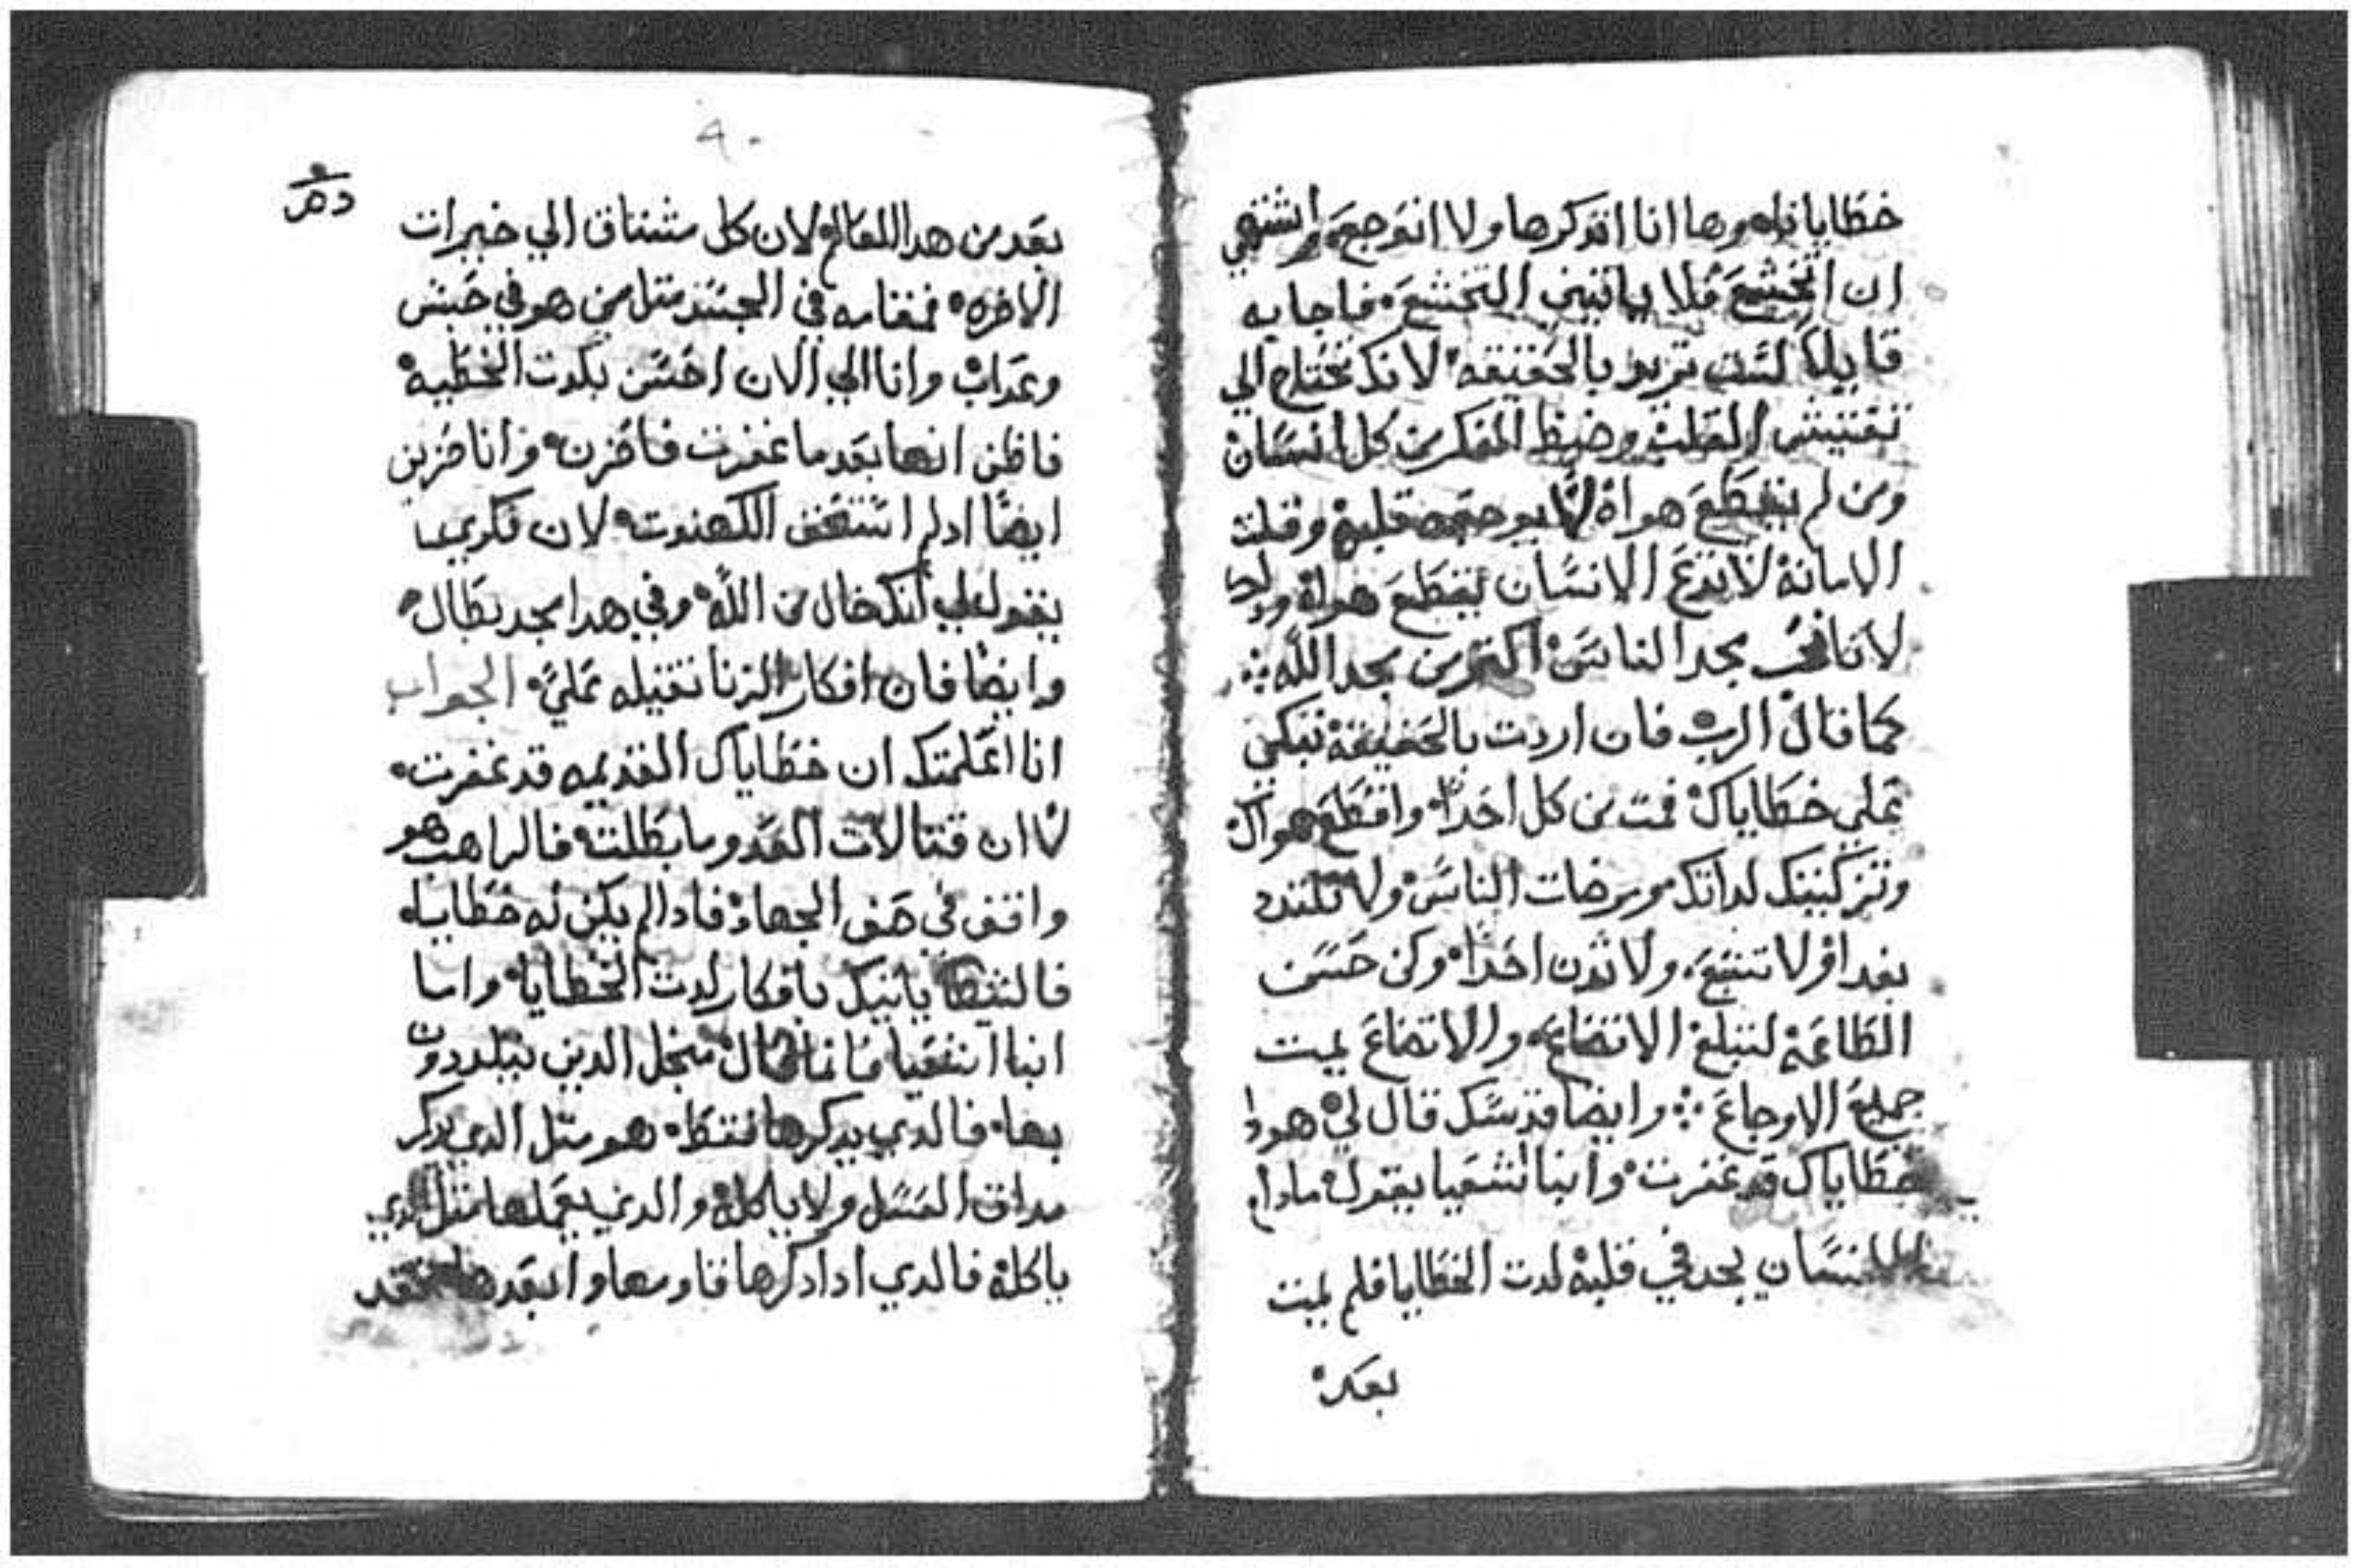 خطايانا وها انا اتدكرها ولا اتوجع واشتهي
ان اتخشع فلا ياتيني التخشع فاجابه
قايلا لست تريد بالحقيقه لانك تحتاج الي
تفتيش القلب وضبط الفكر من كل انسان
ومن لم يقطع هواه لا يوجعه قلبه وقلت
الامانة لا تدع الانسان يقطع هواه
لاننا نحب مجد الناس اكتر من مجد الله
كما قال الرب فان اردت بالحقيقة تبكي
علي خطاياك فمت من كل احد واقطع هواك
وتزكيتك لداتك ومرضات الناس ولا تلتدد
بغدا ولا تشبع ولا تدن احدا وكن حسن
الطاعة لتبلغ الاتضاع والاتضاع يميت
جميع الاوجاع وايضا قدسك قال لي هودا
خطاياك قد غفرت وانبا اشعيا يقول مادام
الانسان يجد في قلبه لدت الخطايا فلم يمت
بعد
٩٠
بعد من هدا العالم لان كل مشتاق الي خيرات
الاخره فمقامه في الجسد متل من هو في حبس
وعداب وانا الي الان احس بلدت الخطيه
فاظن انها بعد ما غفرت فاحزن وانا حزين
ايضا اد لم استحق الكهنوت لان فكري
يقول لي انك خال من الله وفي هدا مجد بطال
وايضا فان افكار الزنا تقيله علي الجواب
انا اعلمتك ان خطاياك القديمه قد غفرت
لا ان قتالات العدو ما بطلت فالراهب هو
واقف في صف الجهاد فادا لم يكن له خطايا
فالشيطان ياتيك بافكار لدت الخطايا واما
انبا اشعيا فانما قال من اجل الدين يتلددون
بها فالدي يدكرها فقط هو متل الدي يدكر
مداق العسل ولا ياكله والدي يعملها متل الدي
ياكله فالدي ادا دكرها قاومها وابعدها فقد